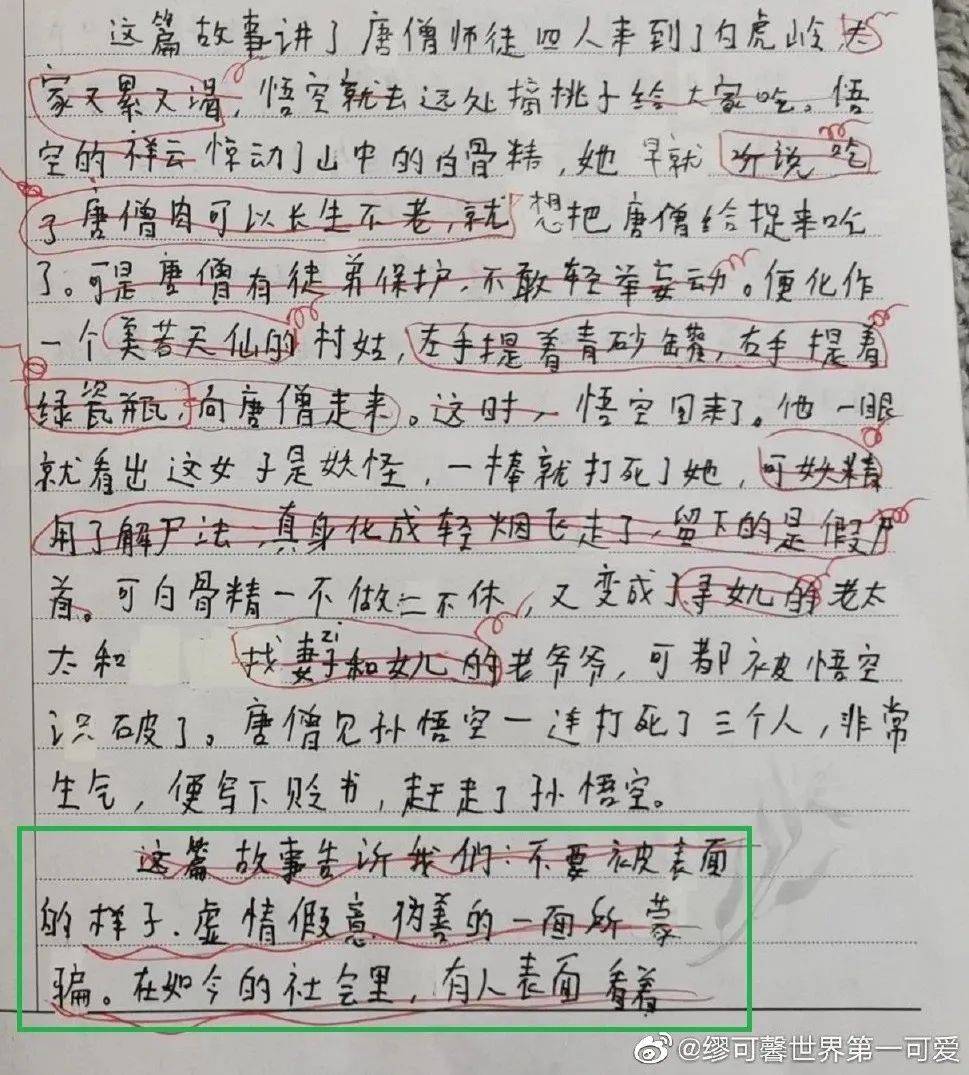 这篇故事讲了唐僧师徒四人来到了白虎岭,大
家又累又渴,悟空就去远处摘桃子给大家吃。悟
空的祥云惊动了山中的白骨精,她早就听说吃
了唐僧肉可以长生不老,就想把唐僧给捉来吃
了。可是唐僧有徒弟保护,不敢轻举妄动。便化作
一个美若天仙的村姑,左手提着青砂罐,右手提着
绿瓷瓶,向唐僧走来。这时,悟空回来了。他一眼
就看出这女子是妖怪,一棒就打死了她,可妖精
用了解尸法,真身化成轻烟飞走了,留下的是假尸
首。可白骨精一不做二不休,又变成了寻女儿的老太
太和 找妻子和女儿的老爷爷,可都被悟空
zi
识破了。唐僧见孙悟空一连打死了三个人,非常
生气,便写下贬书,赶走了孙悟空。
这篇故事告诉我们:不要被表面
的样子、虚情假意伪善的一面所蒙
骗。在如今的社会里,有人表面看着
@缪可馨世界第一可爱